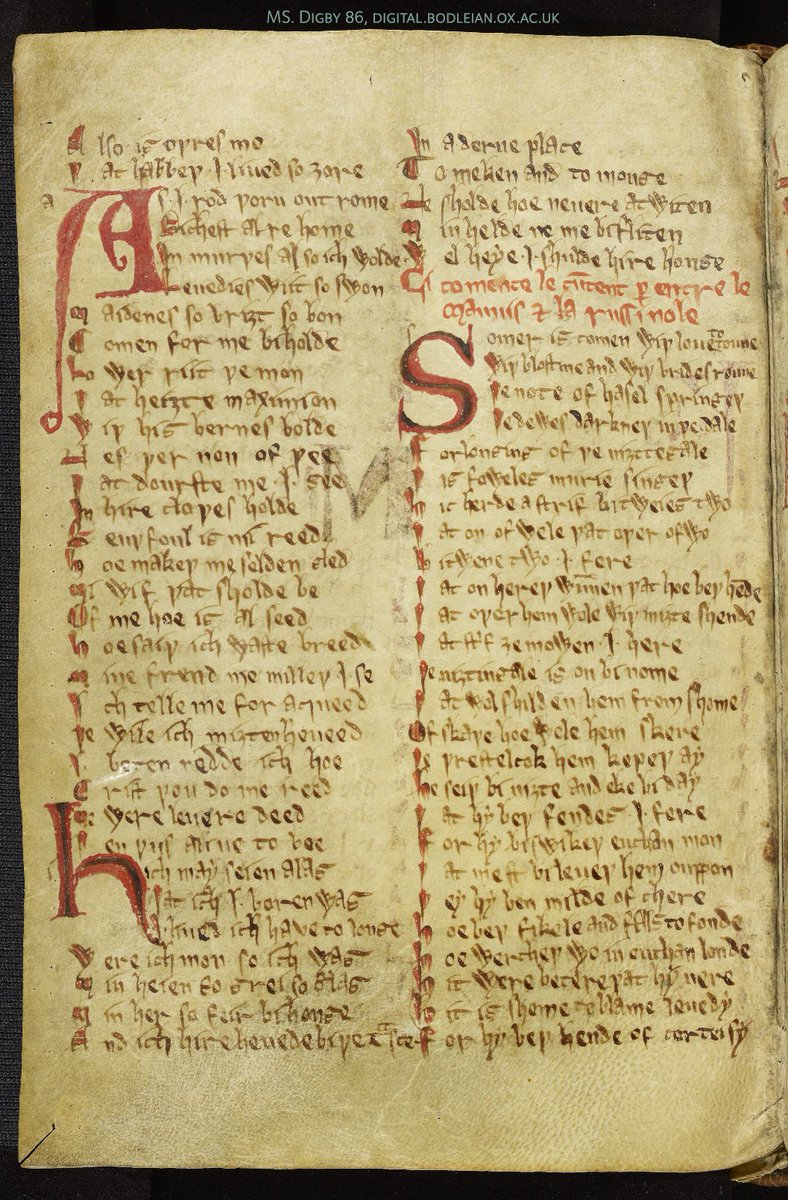 MS. DIGBY 86, DIGITAL.BODLEIAN.OX.AC.UK
Also is oþres mo
Þat habbeþ I liued so ȝore
As I rod þoru out rome
Richest alre home
In murþes al so ich wolde
Leuedies wiit so swon
Maidenes so briȝt so bon
Comen for me biholde
þe mon
Þat heiȝte maximion
Wiþ his bernes bolde
Nes þer non of þee
Þat dourste me I see
In hire cloþes holde
foul is mi reed
Hoe makeþ me selden gled
Mi wif þat sholde be
Of me hoe is al seed
Hoe saiþ ich waste breed
Mine frend me milleþ I se
Ich telle me for a queed
Þe wile ich miȝte heueed
hoe
Crist þou do me reed
Me were leuere deed
Þen þus aliue to bee
Hich may seien alas
Þat ich I boren was
I liued ich haue to longe
Were ich mon so ich was
Min heien so grei so glas
Min her so feir bihonge
And ich hire heuede bi þe
In a derne place
To meken and to monge
Ne sholde hoe neuere atwiten
Min helde ne me bifliten
Wel heȝe I shulde hire honge
Ci comence le cuntent par entre le
Mauuis & la russinole
Somer is comen wiþ loue to toune
Wiþ blostme and wiþ brides roune
Þe note of hasel springeþ
Þe dewes darkneþ in þe dale
For longing of þe niȝttegale
Þis foweles murie singeþ
Hic herde a strif bitweies two
Þat on of wele þat oþer of wo
Bitwene two I fere
Þat on hereþ wimmen þat hoe beþ hende
Þat oþer hem wole wiþ miȝte shende
Þat strif ȝe mowen I here
Þe niȝtingale is on bi nome
Þat wol shilden hem from shome
Of skaþe hoe wele hem skere
Þe þrestelcok hem kepeþ ay
He seiþ bi niȝte and eke bi day
Þat hy beþ fendes I fere
For hy biswikeþ euchan mon
Þat mest bileueþ hem ouppon
Þey hy ben milde of chere
Hoe beþ fikele and fals to fonde
Hoe wercheþ wo in euchan londe
Hit were betere þat hy nere
Hit is shome to blame leuedy
For hy beþ hende of corteisy